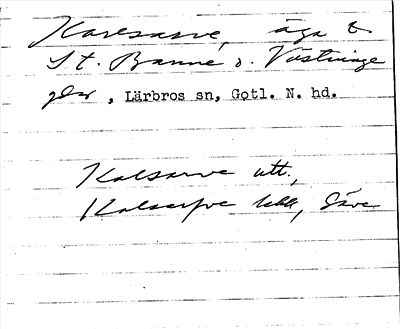 Karlsarve, äga t
St. Banne o. Västringe
gdar, Lärbros sn, Gotl. N. hd.
Kalsarve utt.,
Kalsarfve